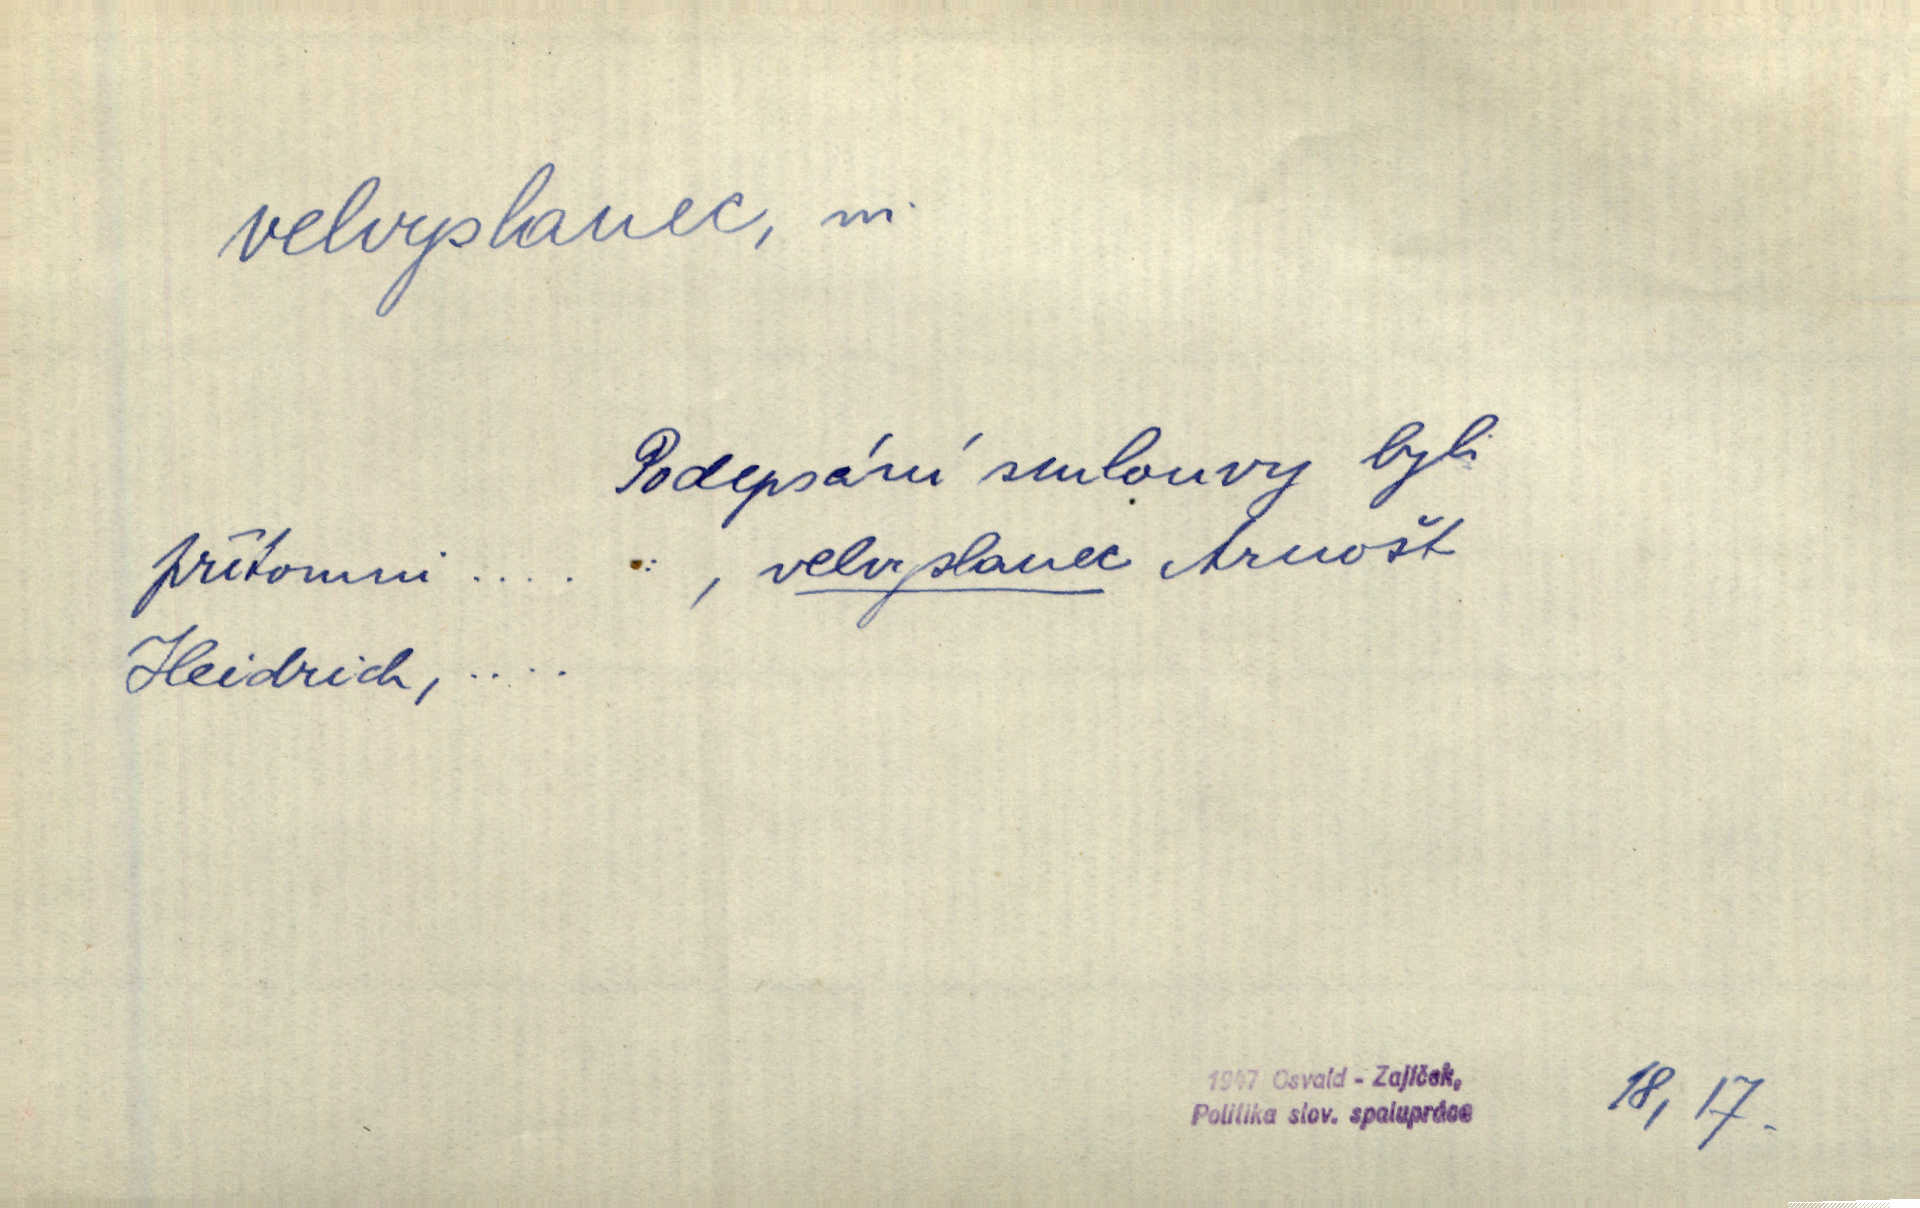 velvyslanec, m.
Podepsání smlouvy byli
přítomni .... .. , velvyslanec Arnošt
Heidrich, ....
1947 Osvald - Zajíček,
Politika slov. spolupráce
18, 17.